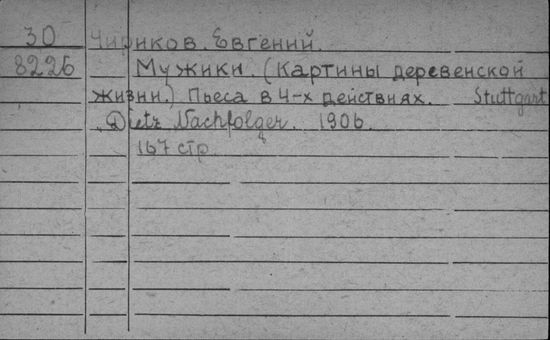 30 Чириков. Евгений.
8226 Мужики. (Картины деревенской
жизни.) Пьеса в 4-х действиях. Stuttgart
Dietz Nachfolger. 1906.
167 стр.